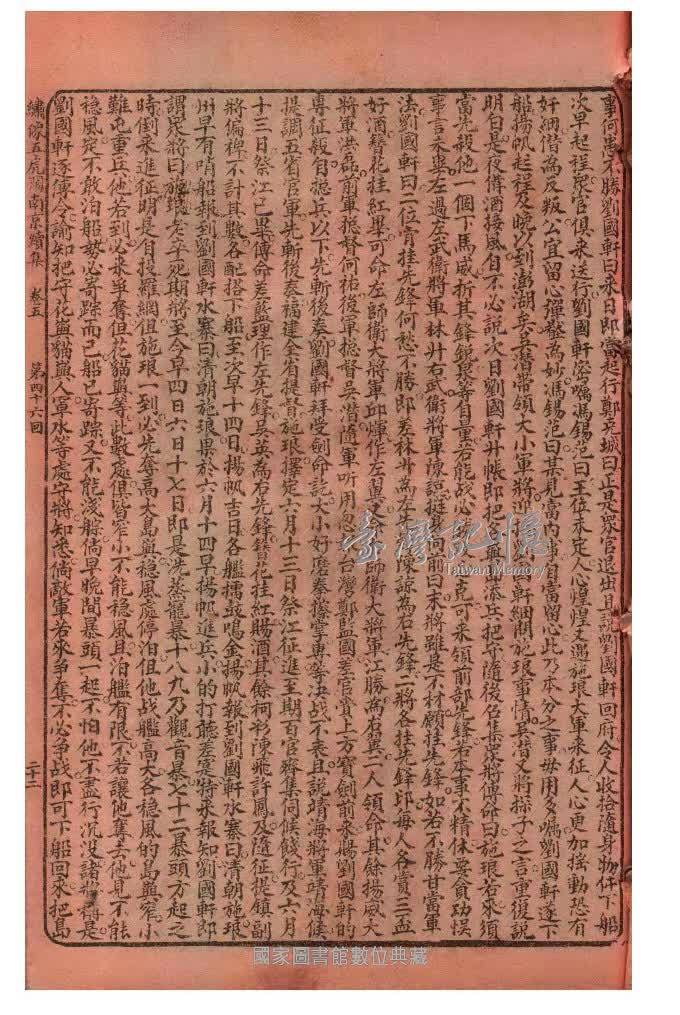 事何愚不勝劉國軒曰來日即當起行鄭克塽曰正是眾官退出且說劉國軒回府令人收拾隨身物件下船
次早起程眾官俱來送行劉國軒密囑馮錫范曰王位未定人心惶惶又遇施琅大軍來征人心更加搖動恐有
奸細僭為反叛公宜留心彈壓為妙馮錫范曰某見當內事自當留心此乃本分之事毋用多囑劉國軒遂下
船揚帆起程及晚以到澎湖矣吳潛帶領大小軍將迎劉國軒細問施琅事情吳潛又將探子之言重復說
明白是夜傳酒接風自不必說次日劉國軒升帳即把各島與添兵把守隨後召集眾將傅命曰施琅若來須
當先殺他一個下馬威折其鋒銳眾等自量若能戰必克可來領前部先鋒若本事不精休要貪功悞
事言未畢左邊左武衛將軍林升右武衛將軍陳諒挺向前曰末將雖是不材願挂先鋒如若不勝甘當軍
法劉國軒曰二位肯挂先鋒何愁不勝即差林升為左先陳諒為右先鋒二將各挂先鋒印每人各賞三盃
好酒簪花挂紅畢可命左師衛大將軍邱煇作左翼又命師衛大將軍江勝為右翼二人領命其餘揚威大
將軍洪磊前軍摠督何祐後軍摠督吳潛隨軍聽用忽台灣鄭監國差官賫上方寶劍前來賜劉國軒的
專征叛自摠兵以下先斬後奏劉國軒拜受劍命訖大小好麼秦操掌專等決战不表且說靖海將軍靖海候
提調五省官軍先斬後奏福建全省提督施琅擇定六月十三日祭江征進至期百官齊集伺候餞行及六月
十三日祭江已畢傳命差藍理作左先鋒吳英為右先鋒簪花挂紅賜酒其餘柯彩陳飛許鳳及隨征提鎮副
將偏裨不計其數各配搭下船至次早十四日揚帆吉日各艦擂鼓鳴金揚帆報到劉國軒水寨曰清朝施琅
州早有哨船報到劉國軒水寨曰清朝施琅果於六月十四早揚帆進兵小的打聽差寔特來報知劉國軒即
謂眾將曰施琅老卒死期將至今早四日六日十七日即是洗蒸籠暴十八九乃觀音暴七十二暴頭方起之
時倒來進征明是自投羅網但施琅一到必先奪高大島與稳風處停泊但他战艦高大各稳風的島與窄小
難屯重兵他若到必來爭奪但花貓與等此數處俱皆窄小不能稳風且泊艦有限不若讓他奪去他見不能
稳風定不敢泊船势必寄踪而已船已寄踪又不能淺躲倘早晚間暴頭一起不怕他不盡行沉没諸將稱是
劉國軒遂傳令諭知把守花嶼貓嶼人軍水等處守將知悉倘敵軍若來爭奪不必爭战即可下船回來把島
繡像五虎鬧南京續集 卷五 第四十六回 二十二
臺灣記憶
Taiwan Memory
國家圖書館數位典藏